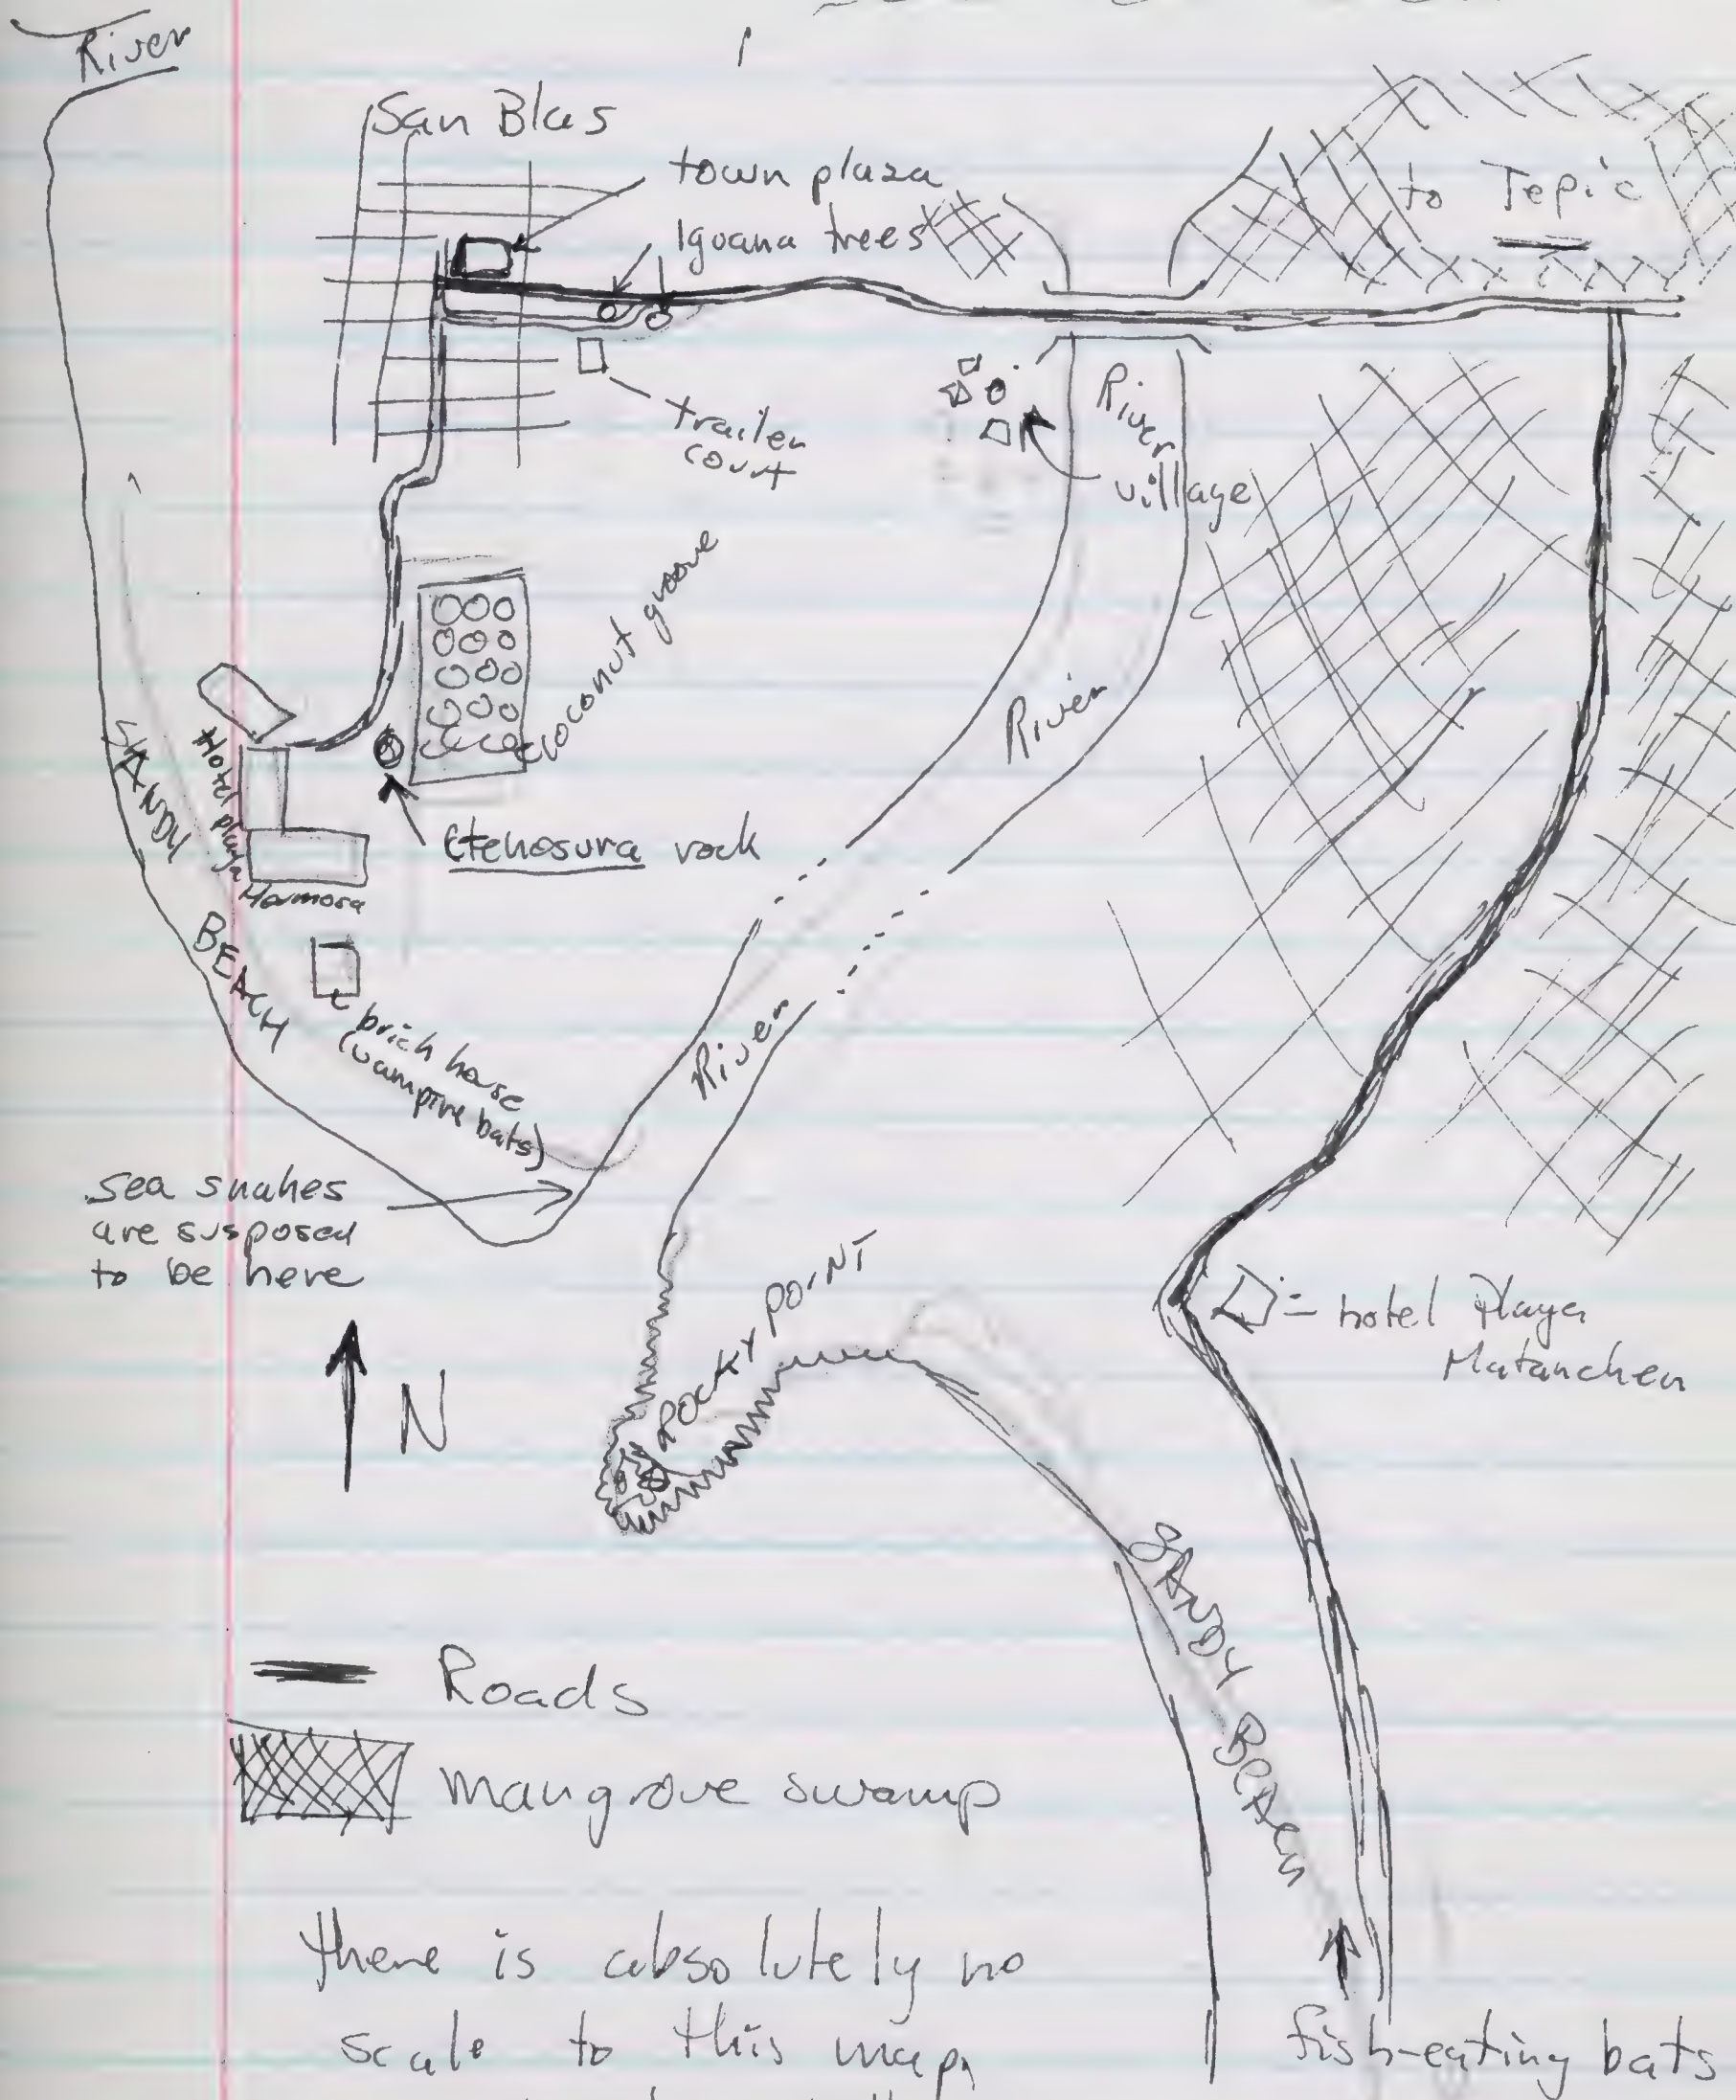 River
San Blas
town plaza
Iguana trees
to Tepic
trailer
court
River
village
coconut groove
River
SANDY
BEACH
Hotel playa
Hermosa
Ctenosura rock
brick house
(vampire bats)
River
sea snakes
are susposed
to be here
N
ROCKY POINT
hotel Playa
Matanchen
SANDY BEACH
Roads
mangrove swamp
there is absolutely no
scale to this map,
fish-eating bats